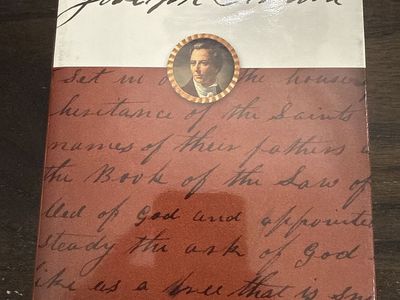 Joseph Smith
Set in o the houses
heritance of the Saints
names of their fathers
the Book of the Law of
lled of God and appointed
steady the ark of God
like as a tree that is